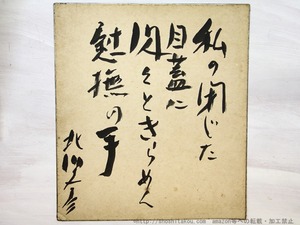 私の閉じた
目蓋に
閃々ときらめく
慰撫の手
北川冬彦
http://shoshitakou.com amazon等への転載・加工禁止